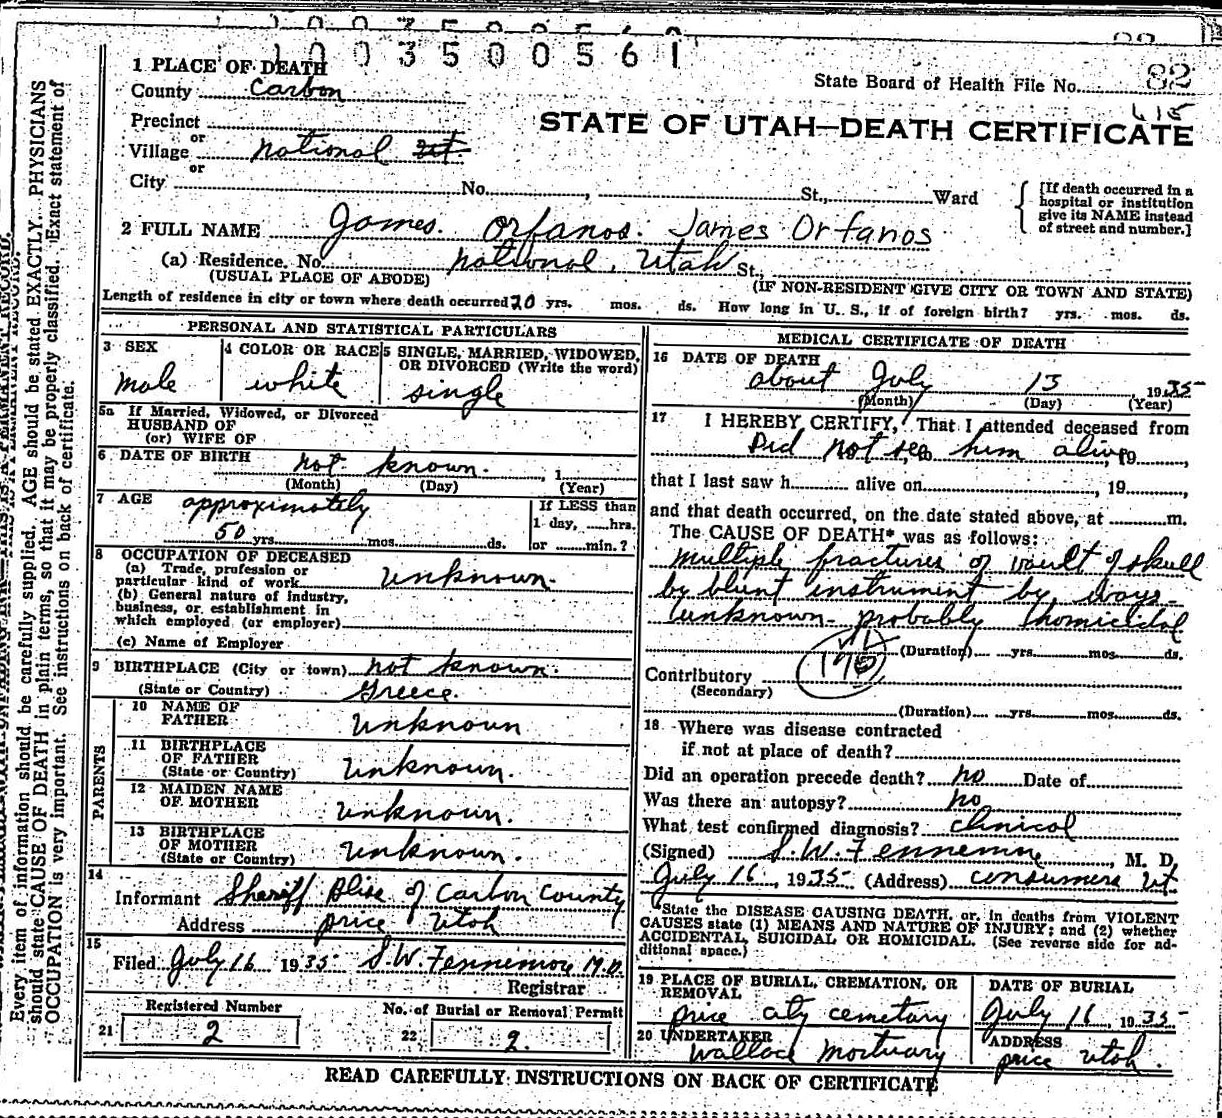 1003500561
1 PLACE OF DEATH
State Board of Health File No. 82
County Carbon
Precinct
STATE OF UTAH—DEATH CERTIFICATE
or
Village National Ut.
or
City No. , St., Ward
[If death occurred in a hospital or institution give its NAME instead of street and number.]
2 FULL NAME James Orfanos. James Orfanos
(a) Residence. No. National, Utah St.,
(USUAL PLACE OF ABODE) (IF NON-RESIDENT GIVE CITY OR TOWN AND STATE)
Length of residence in city or town where death occurred 20 yrs. mos. ds. How long in U. S., if of foreign birth? yrs. mos. ds.
PERSONAL AND STATISTICAL PARTICULARS
3 SEX
male
4 COLOR OR RACE
white
5 SINGLE, MARRIED, WIDOWED, OR DIVORCED (Write the word)
single
5a If Married, Widowed, or Divorced
HUSBAND OF
(or) WIFE OF
6 DATE OF BIRTH not known. , 1
(Month) (Day) (Year)
7 AGE approximately
50 yrs. mos. ds.
If LESS than
1 day, hrs.
or min.?
8 OCCUPATION OF DECEASED
(a) Trade, profession or
particular kind of work unknown.
(b) General nature of industry,
business, or establishment in
which employed (or employer)
(c) Name of Employer
9 BIRTHPLACE (City or town) not known.
(State or Country) Greece.
PARENTS
10 NAME OF
FATHER unknown
11 BIRTHPLACE
OF FATHER
(State or Country) unknown.
12 MAIDEN NAME
OF MOTHER unknown.
13 BIRTHPLACE
OF MOTHER
(State or Country) unknown.
14
Informant Sheriff Bliss of Carbon County
Address Price Utah
15
Filed July 16 1935 S.W. Fennemore M.D.
Registrar
Registered Number
21 2
No. of Burial or Removal Permit
22 2.
MEDICAL CERTIFICATE OF DEATH
16 DATE OF DEATH
about July 13 1935
(Month) (Day) (Year)
17 I HEREBY CERTIFY, That I attended deceased from
Did not see him alive, 19 ,
that I last saw h alive on , 19 ,
and that death occurred, on the date stated above, at m.
The CAUSE OF DEATH* was as follows:
multiple fractures of vault of skull
by blunt instrument by ways
unknown- probably homicidal
(Duration) yrs. mos. ds.
Contributory
(Secondary)
(Duration) yrs. mos. ds.
18 Where was disease contracted
if not at place of death?
Did an operation precede death? no Date of
Was there an autopsy? no
What test confirmed diagnosis? clinical
(Signed) S.W. Fennemore, M. D.
July 16, 1935 (Address) Consumers Ut.
*State the DISEASE CAUSING DEATH, or, in deaths from VIOLENT
CAUSES state (1) MEANS AND NATURE OF INJURY; and (2) whether
ACCIDENTAL, SUICIDAL OR HOMICIDAL. (See reverse side for ad-
ditional space.)
19 PLACE OF BURIAL, CREMATION, OR
REMOVAL
Price city cemetary
DATE OF BURIAL
July 16, 1935
20 UNDERTAKER
Wallace Mortuary
ADDRESS
Price Utah.
READ CAREFULLY INSTRUCTIONS ON BACK OF CERTIFICATE
Every item of information should be carefully supplied. AGE should be stated EXACTLY. PHYSICIANS
should state CAUSE OF DEATH in plain terms, so that it may be properly classified. Exact statement of
OCCUPATION is very important. See instructions on back of certificate.